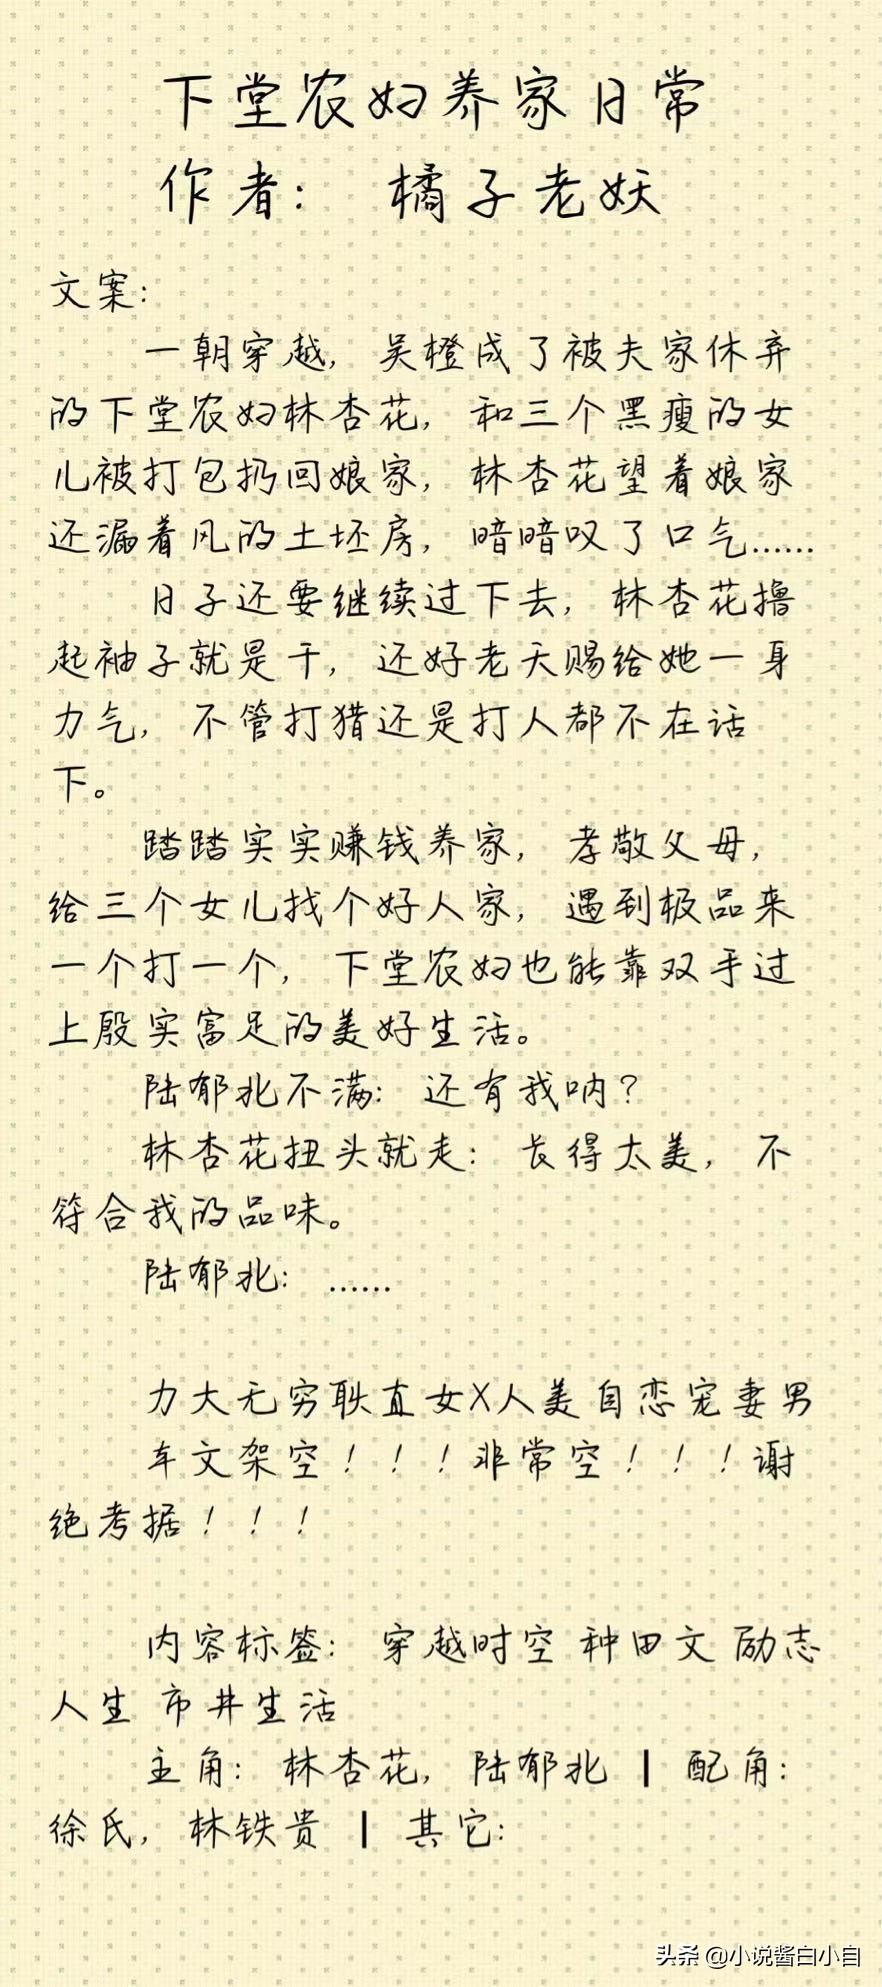 下堂农妇养家日常
作者： 橘子老妖
文案：
一朝穿越，吴橙成了被夫家休弃
的下堂农妇林杏花，和三个黑瘦的女
儿被打包扔回娘家，林杏花望着娘家
还漏着风的土坯房，暗暗叹了口气……
日子还要继续过下去，林杏花撸
起袖子就是干，还好老天赐给她一身
力气，不管打猎还是打人都不在话
下。
踏踏实实赚钱养家，孝敬父母，
给三个女儿找个好人家，遇到极品来
一个打一个，下堂农妇也能靠双手过
上殷实富足的美好生活。
陆郁北不满：还有我呐？
林杏花扭头就走：长得太美，不
符合我的品味。
陆郁北：……
力大无穷耿直女X人美自恋宠妻男
本文架空！！！非常空！！！谢
绝考据！！！
内容标签： 穿越时空 种田文 励志
人生 市井生活
主角：林杏花，陆郁北 ┃ 配角：
徐氏，林铁贵 ┃ 其它：
头条 @小说酱白小白